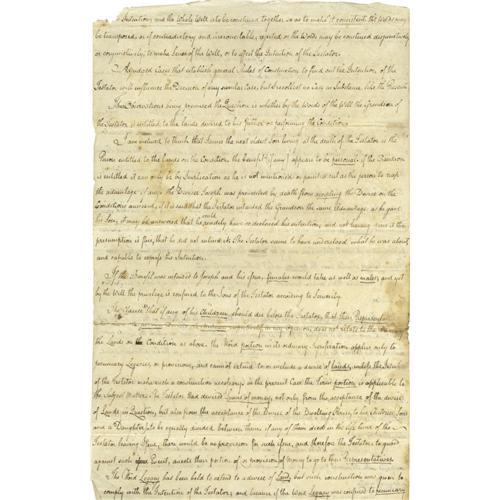 Intention, and the Whole Will also be construed together so as to make it consistent the words may
be transposed or if contradictory and irreconcilable, rejected or the Words may be construed disjunctively
or conjunctively, to make Sense of the Will, or to effect the Intention of the Testator.
Adjudged Cases that establish general Rules of Construction to find out the Intention of the
Testator will influence the Decision of any similar Case, but I recollect no Case in Substance like the Present.
These Observations being premised the Question is whether by the Words of the Will the Grandson of
the Testator is entitled to the lands devised to his father on performing the Conditions.
I am inclined to think that James the next oldest Son living at the death of the Testator is the
Person entitled to the lands on the Condition, the benefit (if any) appears to be personal. If the Grandson
is entitled it can only be by Implication as he is not mentioned or pointed out as the person to reap
the advantage if any the Devisee Joseph was prevented by death from accepting the Devise on the
Conditions annexed, if it is said that the Testator intended the Grandson the same advantage as he gave
his Son, it may be answered that he could readily have so declared his intention, and not having done it the
presumption is fair, that he did not intend it. The Testator seems to have understood what he was about
and capable to express his Intention.
If the Benefit was intended to Joseph and his Issue, females would take as well as males, and yet
by the Will the privilege is confined to the Sons of the Testator according to Seniority.
The Clause that if any of his Children should die before the Testator, that their Representatives
does not relate to the
the Lands on the Condition as above. The Word portion in its ordinary Signification applies only to
pecuniary Legacies or provisions, and cannot extend to or include a devise of lands, unless the Intention
of the Testator makes such a construction necessary. in the present Case the Word portion is applicable to
the Subject Matter. The Testator had devised Sums of money, not only from the acceptance of the devise
of Lands in Question, but also from the acceptance of the Devise of the Dwelling House, to his Sons
and a Daughter, to be equally divided between them; if any of them died in the life time of the
Testator leaving Issue, there would be no provision for such Issue, and therefore the Testator to guard
against such Event, directs their portion or provision of money to go to their Representatives.
The Word Legacy has been held to extend to a devise of Land, but such construction was
to comply with the Intention of the Testator, and because if the Word Legacy was confined to pecuniary